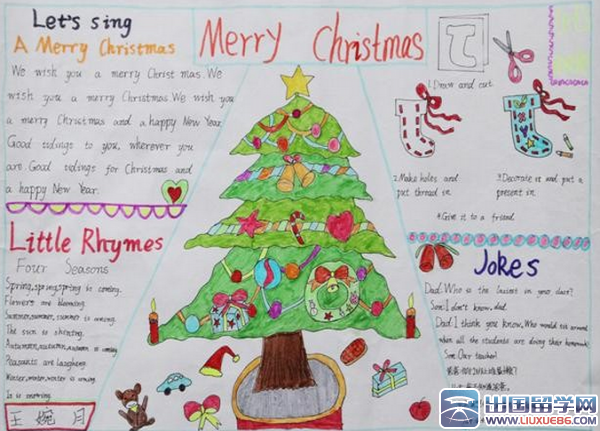 Let's sing
A Merry Christmas
We wish you a merry Christ mas. We
wish you a merry Christmas. We wish you
a merry Christmas and a happy New Year.
Good tidings to you, wherever you
are. Good tidings for Christmas and
a happy New Year.
Little Rhymes
Four Seasons
Spring, spring, spring is coming.
Flowers are blooming.
Summer, summer, summer is coming.
The sun is shining.
Autumn, autumn, autumn is coming
Peasants are laughing.
Winter, winter, winter is coming.
is coming.
王婉月
Merry Christmas
1. Draw and cut.
2. Make holes and
put thread in.
3. Decorate it and put a
present in.
4. Give it to a friend
Jokes
Dad: Who is the laziest in your class?
Son: I don't know, dad.
Dad: I think you know. Who would sit around
when all the students are doing their homework?
Son: Our teacher!
出国留学网
WWW.LIUXUE86.COM